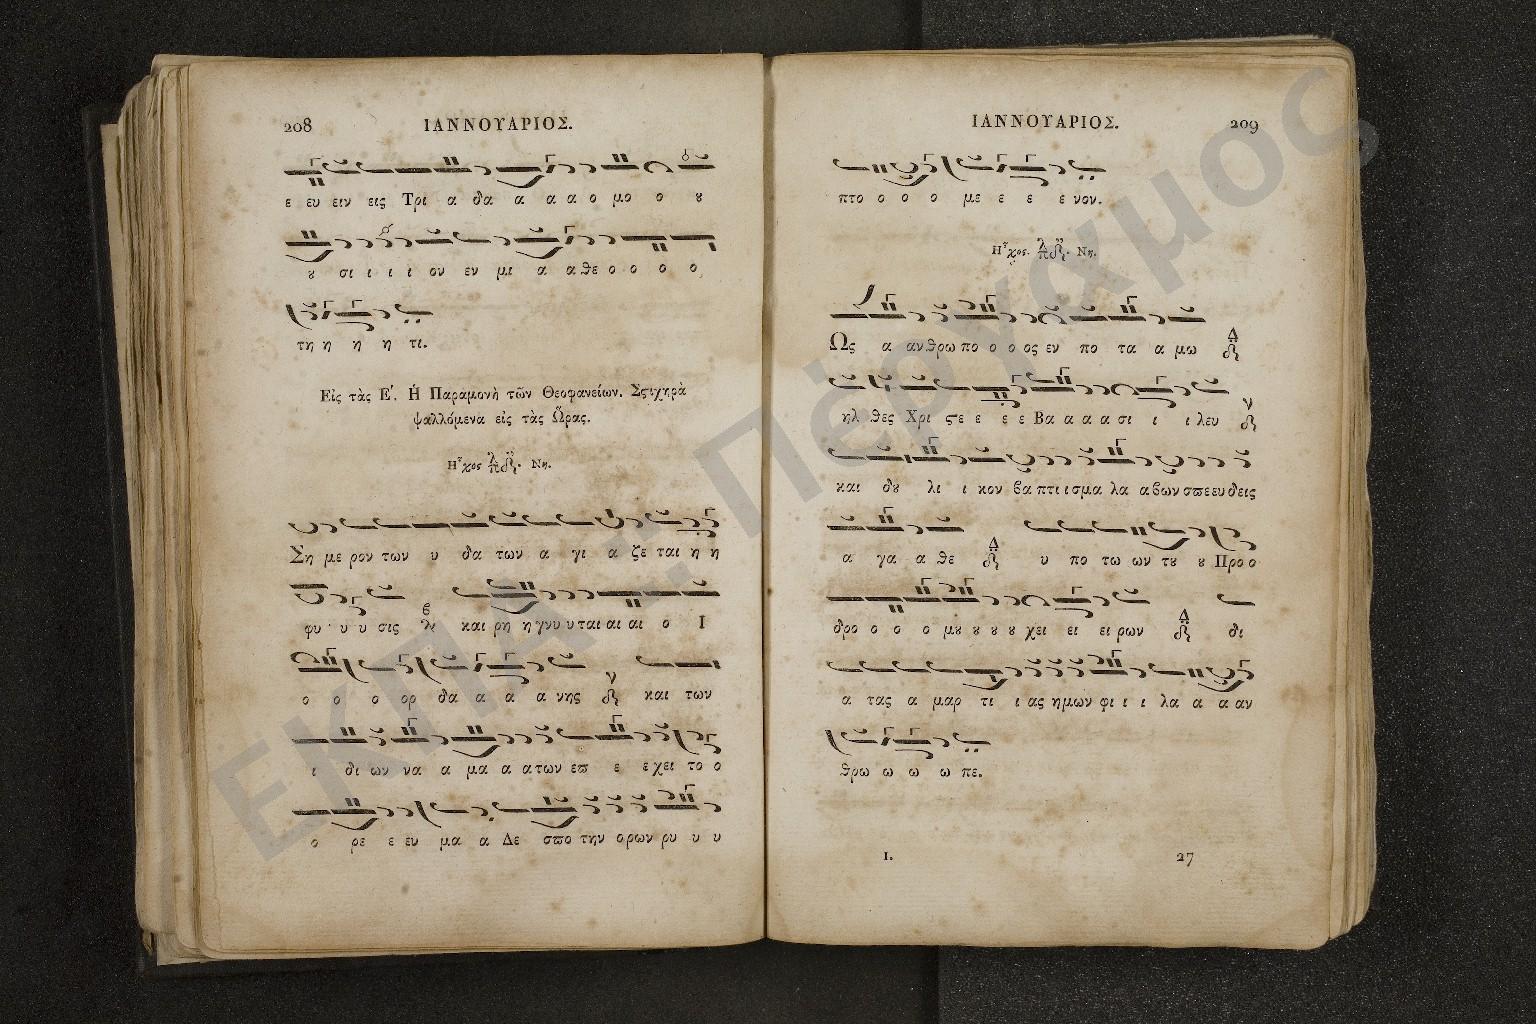 208 ΙΑΝΝΟΥΑΡΙΟΣ.
ε ευ ειν εις Τρι α δα α α α ο μο ο ȣ
ȣ σι ι ι ι ον εν μι α α θε ο ο ο ο
τη η η η τι.
Εἰς τὰς Ε΄. Ἡ Παραμονὴ τῶν Θεοφανείων. Στιχηρὰ
ψαλλόμενα εἰς τὰς Ὥρας.
Ηχος Νη.
Ση με ρον των υ δα των α γι α ζε ται η η
φυ υ υ σις και ρη η γνυ υ ται αι αι ο Ι
ο ο ο ορ δα α α α νης και των
ι δι ων να α μα α α των επ ε ε χει το ο
ο ρε ε ευ μα α Δε σπο την ορων ρυ υ υ
ΙΑΝΝΟΥΑΡΙΟΣ. 209
πτο ο ο ο με ε ε ε νον.
Ηχος. Νη.
Ως α αν θρω πο ο ο ος εν πο τα α μω
ηλ θες Χρι στε ε ε ε Βα α α α σι ι ι λευ
και δȣ λι ι κον βα πτι ισμα λα α βων σπε ευ δεις
α γα α θε υ πο τω ων τȣ ȣ Προ ο
δρο ο ο ο μȣ ȣ ȣ ȣ χει ει ει ρων δι
α τας α μαρ τι ι ας ημων φι ι ι λα α α αν
θρω ω ω ω πε.
I. 27
ΕΚΠΑ :: Πέργαμος